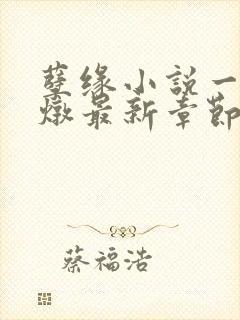 孽缘小説一
燉最新章節
蔡福浩